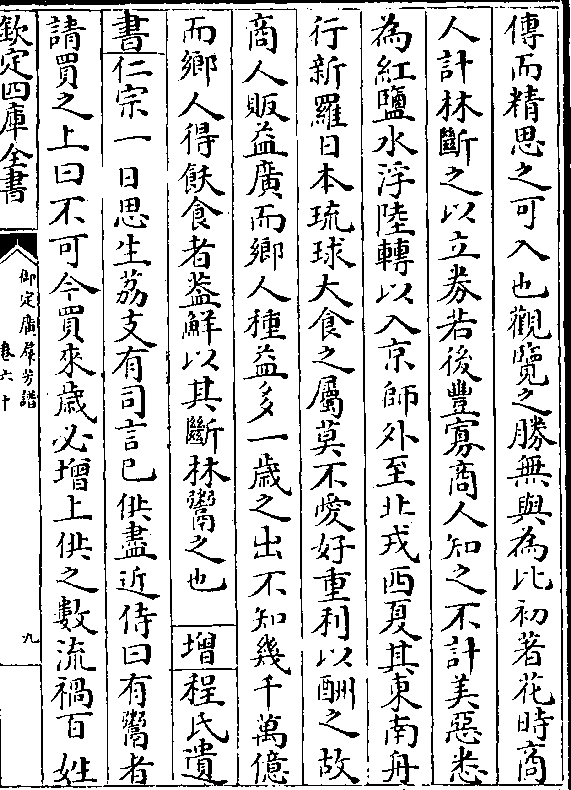 傳而精思之可入也觀覽之勝無與為比初著花時商
人計林斷之以立劵若後豐寡商人知之不計美惡悉
為紅鹽水浮陸轉以入京師外至北戎西夏其東南舟
行新羅日本琉球大食之屬莫不愛好重利以酬之故
商人販益廣而鄉人種益多一歲之出不知幾千萬億
而鄉人得飫食者葢鮮以其斷林鬻之也 增 程氏遺
書 仁宗一日思生荔支有司言已供盡近侍曰有鬻者
請買之上曰不可今買來歲必增上供之數流禍百姓
欽定四庫全書
御定廣羣芳譜
卷六十
九